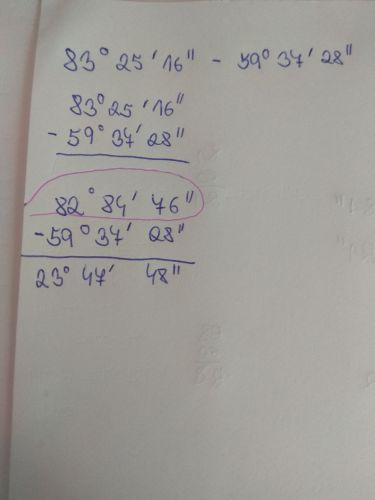 83° 25' 16" - 59° 37' 28"
83° 25' 16"
- 59° 37' 28"
82° 84' 76"
- 59° 37' 28"
23° 47' 48"